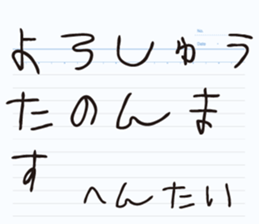 よろしゅう
たのんま
す
へんたい